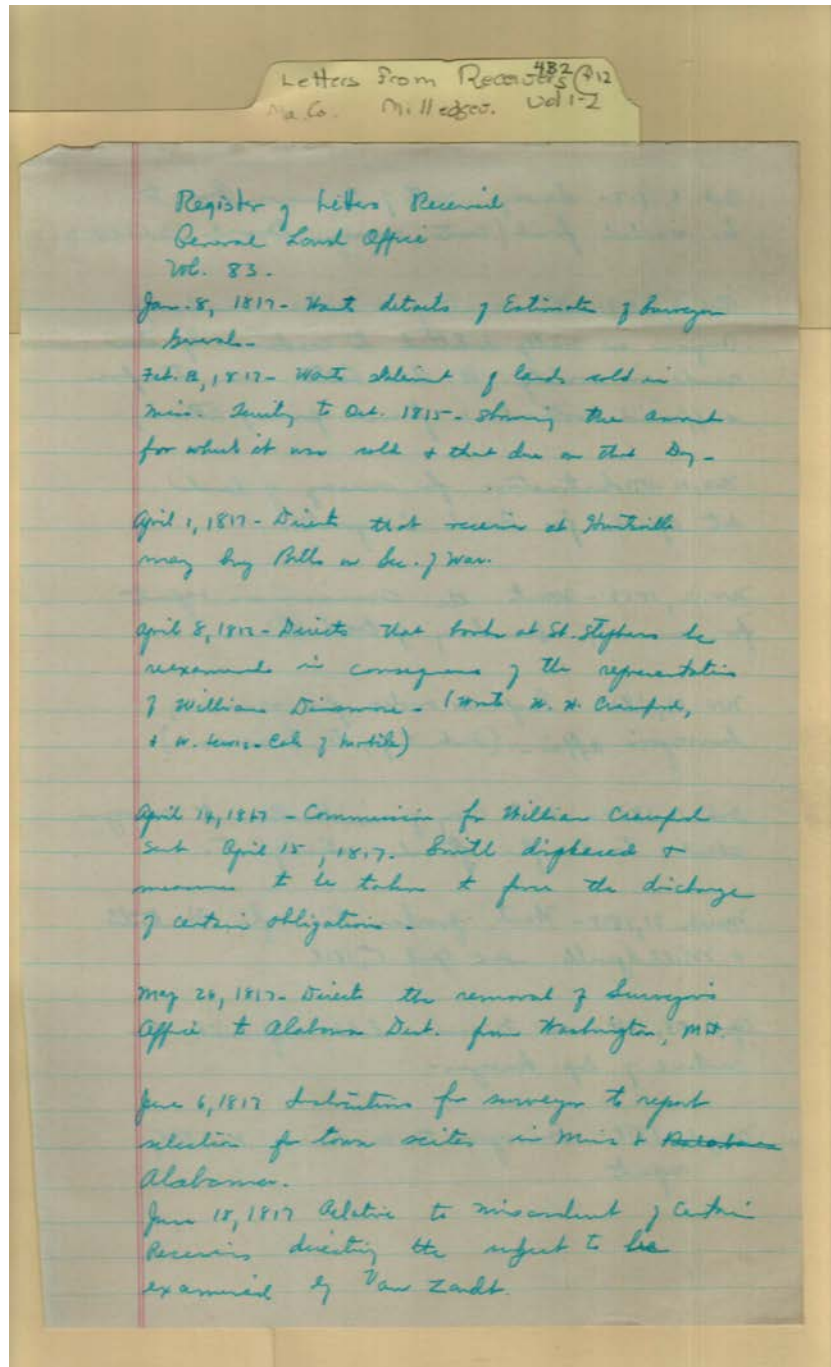 Letters From Receivers 4B2 P12
Ma. Co. Milledgev. Vol 1-2
Register of Letters Received
General Land Office
Vol. 83.
Jan. 8, 1817 - Wants details of Estimates of Surveyor
General -
Feb. 12, 1817 - Wants statement of lands sold in
Miss. Territy to Oct. 1815 - showing the amount
for which it was sold & that due on that Day -
April 1, 1817 - Directs that receiver at Huntsville
may buy Bills on Sec. of War.
April 8, 1817 - Directs that books at St. Stephens be
reexamined in consequence of the representation
of William Dinsmore - (Wrote W. H. Crawford,
& W. Lewis - Col. of Mobile)
April 14, 1817 - Commission for William Crawford
sent April 15, 1817. Smith displaced &
measures to be taken to force the discharge
of certain obligations.
May 26, 1817 - Directs the removal of Surveyor's
Office to Alabama Dist. from Washington, M.T.
June 6, 1817 Instructions for surveyor to report
selection for town scites in Miss &
Alabama.
June 18, 1817 Relative to misconduct of Certain
Receivers directing the subject to be
examined by Van Zandt.